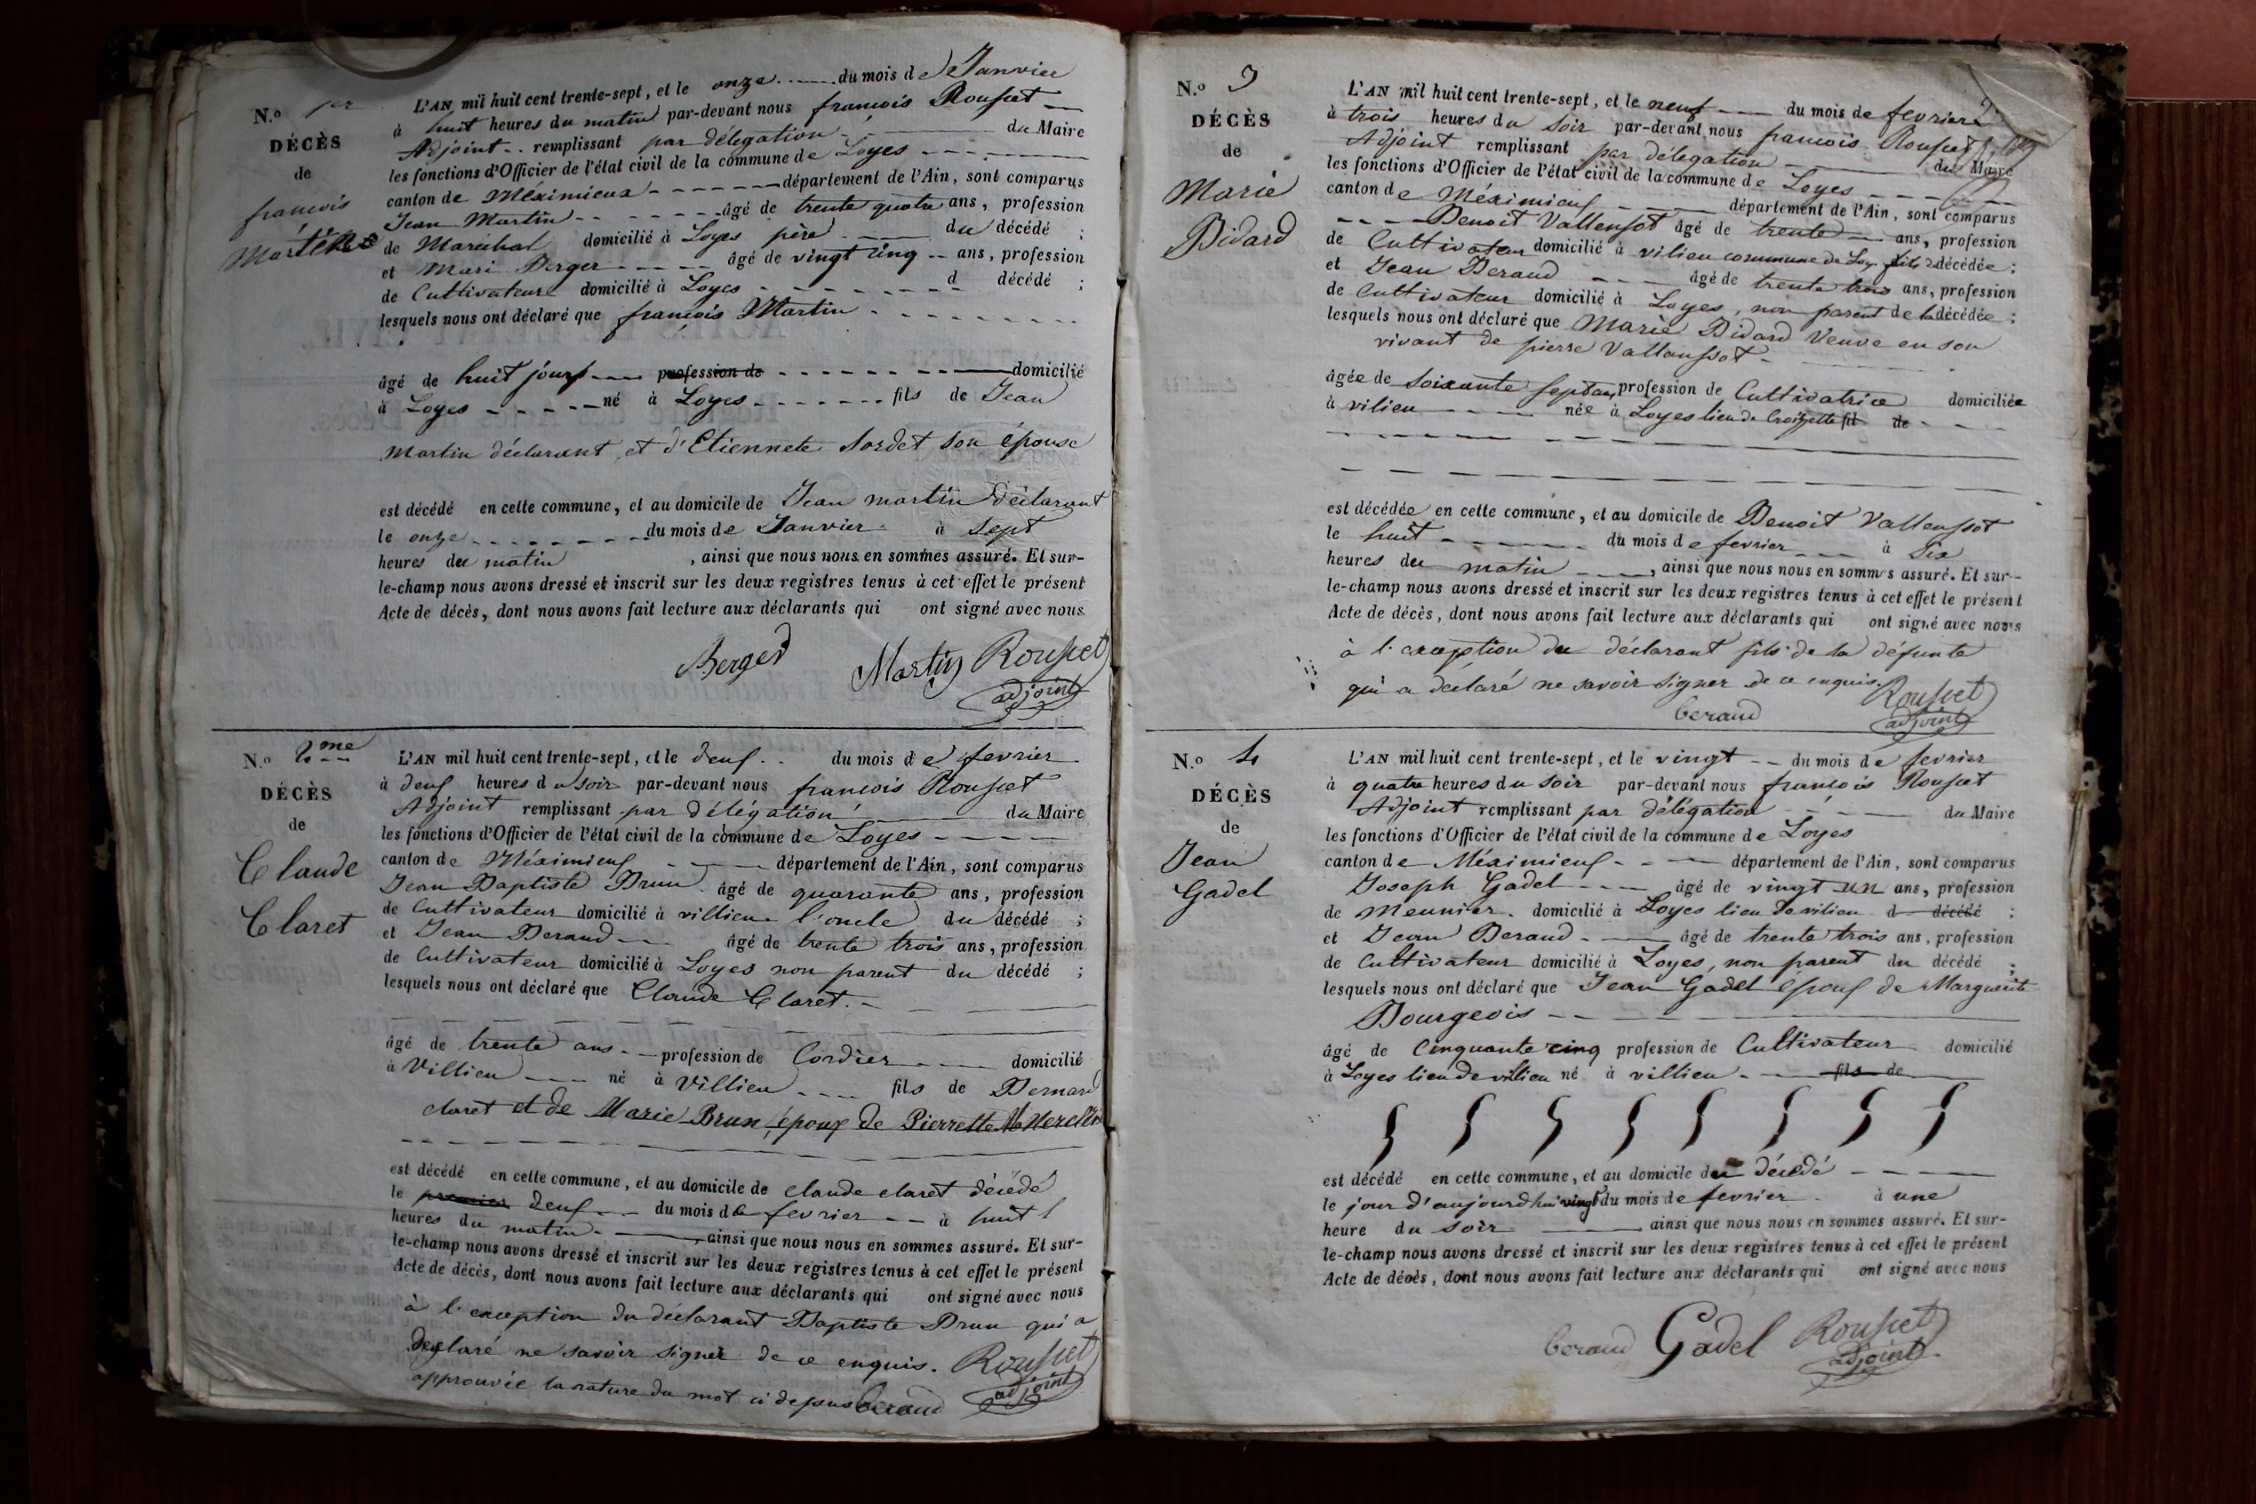 N.o 1er
DÉCÈS
de
françois
Martin
L'AN mil huit cent trente-sept, et le onze du mois de Janvier
à huit heures du matin par-devant nous françois Rousset
Adjoint remplissant par délégation du Maire
les fonctions d'Officier de l'état civil de la commune de Loyes
canton de Méximieux département de l'Ain, sont comparus
Jean Martin âgé de trente quatre ans, profession
de Maréchal domicilié à Loyes père du décédé ;
et Mari Berger âgé de vingt cinq ans, profession
de Cultivateur domicilié à Loyes d décédé ;
lesquels nous ont déclaré que françois Martin
âgé de huit jours profession de domicilié
à Loyes né à Loyes fils de Jean
Martin déclarant et d'Etiennete Sordet son épouse
est décédé en cette commune, et au domicile de Jean martin déclarant
le onze du mois de Janvier à sept
heures du matin, ainsi que nous nous en sommes assuré. Et sur-
le-champ nous avons dressé et inscrit sur les deux registres tenus à cet effet le présent
Acte de décès, dont nous avons fait lecture aux déclarants qui ont signé avec nous
Berger Martin Rousset
adjoint
N.o 2me
DÉCÈS
de
Claude
Claret
L'AN mil huit cent trente-sept, et le deux du mois de fevrier
à deux heures du soir par-devant nous françois Rousset
Adjoint remplissant par délégation du Maire
les fonctions d'Officier de l'état civil de la commune de Loyes
canton de Méximieux département de l'Ain, sont comparus
Jean Baptiste Brun âgé de quarante ans, profession
de Cultivateur domicilié à villieu l'oncle du décédé ;
et Jean Beraud âgé de trente trois ans, profession
de Cultivateur domicilié à Loyes non parent du décédé ;
lesquels nous ont déclaré que Claude Claret
âgé de trente ans profession de Cordier domicilié
à Villieu né à Villieu fils de Bernard
claret et de Marie Brun époux de Pierrette
est décédé en cette commune, et au domicile de claude claret décédé
le premier deux du mois de fevrier à huit
heures du matin, ainsi que nous nous en sommes assuré. Et sur-
le-champ nous avons dressé et inscrit sur les deux registres tenus à cet effet le présent
Acte de décès, dont nous avons fait lecture aux déclarants qui ont signé avec nous
à l'exception du déclarant Baptiste Brun qui a
declaré ne savoir signer de ce enquis. Rousset
approuvée la rature du mot ci dessus beraud adjoint
N.o 3
DÉCÈS
de
Marie
Bidard
L'AN mil huit cent trente-sept, et le neuf du mois de fevrier
à trois heures du soir par-devant nous francois Rousset
Adjoint remplissant par délégation du Maire
les fonctions d'Officier de l'état civil de la commune de Loyes
canton de Méximieux département de l'Ain, sont comparus
Benoit Vallensot âgé de trente ans, profession
de Cultivateur domicilié à vilieu commune de Loy fils décédée ;
et Jean Beraud âgé de trente trois ans, profession
de Cultivateur domicilié à Loyes, non parent de la décédée ;
lesquels nous ont déclaré que Marie Bidard Veuve en son
vivant de pierre Vallanssot
âgée de soixante sept ans profession de Cultivatrice domiciliée
à vilieu née à Loyes lieu de Croizette fil de
est décédée en cette commune, et au domicile de Benoit Vallenssot
le huit du mois de fevrier à six
heures du matin, ainsi que nous nous en sommes assuré. Et sur-
le-champ nous avons dressé et inscrit sur les deux registres tenus à cet effet le présent
Acte de décès, dont nous avons fait lecture aux déclarants qui ont signé avec nous
à l'exception du déclarant fils de la défunte
qui a déclaré ne savoir signer de ce enquis. Rousset
beraud adjoint
N.o 4
DÉCÈS
de
Jean
Gadel
L'AN mil huit cent trente-sept, et le vingt du mois de fevrier
à quatre heures du soir par-devant nous francois Rousset
Adjoint remplissant par délégation du Maire
les fonctions d'Officier de l'état civil de la commune de Loyes
canton de Méximieux département de l'Ain, sont comparus
Joseph Gadel âgé de vingt un ans, profession
de Meunier domicilié à Loyes lieu de vilieu d décédé ;
et Jean Beraud âgé de trente trois ans, profession
de Cultivateur domicilié à Loyes, non parent du décédé ;
lesquels nous ont déclaré que Jean Gadel époux de Marguerite
Bourgeois
âgé de Cinquante cinq profession de Cultivateur domicilié
à Loyes lieu de vilieu né à villieu fils de
est décédé en cette commune, et au domicile du décédé
le jour d'aujourdhui vingt du mois de fevrier à une
heure du soir, ainsi que nous nous en sommes assuré. Et sur-
le-champ nous avons dressé et inscrit sur les deux registres tenus à cet effet le présent
Acte de décès, dont nous avons fait lecture aux déclarants qui ont signé avec nous
beraud Gadel Rousset
adjoint